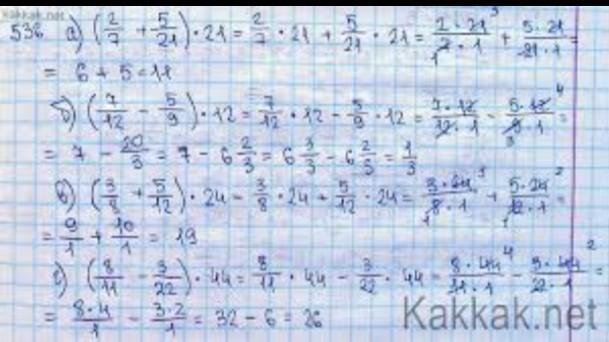 kakkak.net
536 а) (2/7 + 5/21) · 21 = 2/7 · 21 + 5/21 · 21 = 2 · 21 3/1 7 · 1 + 5 · 21/21 · 1 =
= 6 + 5 = 11
б) (7/12 - 5/9) · 12 = 7/12 · 12 - 5/9 · 12 = 7 · 12/12 · 1 - 5 · 12 4/3 9 · 1 =
= 7 - 20/3 = 7 - 6 2/3 = 6 3/3 - 6 2/3 = 1/3
в) (3/8 + 5/12) · 24 = 3/8 · 24 + 5/12 · 24 = 3 · 24 3/1 8 · 1 + 5 · 24 2/1 12 · 1 =
= 9/1 + 10/1 = 19
г) (8/11 - 3/22) · 44 = 8/11 · 44 - 3/22 · 44 = 8 · 44 4/11 · 1 - 3 · 44 2/22 · 1 =
= 8 · 4/1 - 3 · 2/1 = 32 - 6 = 26
Kakkak.net